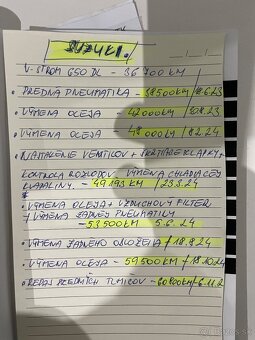 SUZUKI.
V-STROM 650 DL - 36 700 KM
• PREDNA PNEUMATIKA - 38500KM/
• VÝMENA OLEJA - 42000KM/
• VÝMENA OLEJA - 48 000KM/8.2.24
• NASTAVENIE VENTILOV + SKRTIACE KLAPKY+
KONTROLA ROZVODOV VÝMENA CHLADIACEJ
KVAPALINY - 49 193 KM /
• VÝMENA OLEJA + VZDUCHOVÝ FILTER
+ VÝMENA ZADNEJ PNEUMATIKY
- 53 500 KM 5.6.24
• VÝMENA ZADNÉHO OBLOŽENIA /18.8.24
• VÝMENA OLEJA - 59 500KM/18.10.24
• REPAS PREDNÝCH TLMICOV - /6.11.2